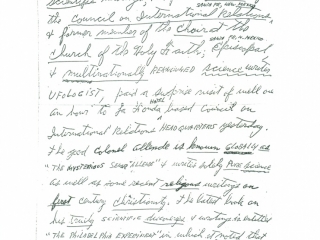 SANTA FE, NEW MEXICO
the Council on International Relations,
SANTA FE, N. MEXICO
& former member of the Choir of the
Church of the Holy Faith; Episcopal
& multinationally RENOWNED science writer
UFOLOGIST, paid a surprise visit of well over
an hour to La Fonda HOTEL based Council on
International Relations HEADQUARTERS yesterday.
The good Colonel Allende is known GLOBALLY as
"THE MYSTERIOUS SENOR ALLENDE" & writes solely PURE SCIENCE
as well as some recent religious writings on
first century Christianity. The latest book on
his truly SCIENTIFIC discoveries & writings is entitled
"THE PHILADELPHIA EXPERIMENT" in which it noted that